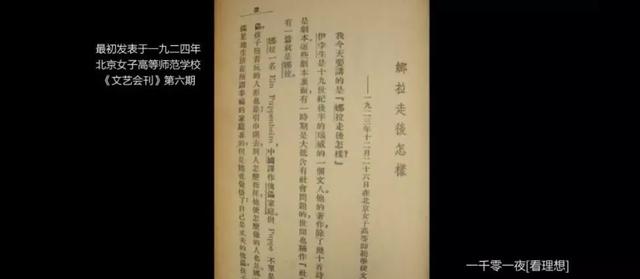 最初发表于一九二四年
北京女子高等师范学校
《文艺会刊》第六期
娜拉走後怎樣
——一九二三年十二月二十六日在北京女子高等師範學校文
我今天要講的是『娜拉走後怎樣？』
伊孛生是十九世紀後半的瑙威的一個文人。他的著作，除了幾十首詩
是劇本。這些劇本裏面，有一時期是大抵含有社會問題的，世間也稱作『社
有一篇就是娜拉。
娜拉一名 Ein Puppenheim，中國譯作傀儡家庭。但 Puppe 不單是
孩子抱着玩的人形也是；引申開去，別人怎麼指揮，他便怎麼做的人也是。
滿足地生活在所謂幸福的家庭裏的，但是她竟覺悟了：自己是丈夫的傀儡，
一千零一夜[看理想]